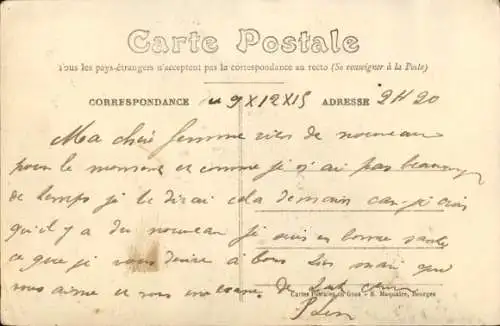 Carte Postale
Tous les pays étrangers n'acceptent pas la correspondance au recto (Se renseigner à la Poste)
CORRESPONDANCE du 9X12X15 ADRESSE 2H20
Ma chère femme rien de nouveau
pour le moment et comme je n'ai pas beaucoup
de temps je te dirai cela demain car je crois
qu'il y a du nouveau je suis en bonne santé
ce que je vous désire à tous ton mari qui
vous aime et vous de
Cartes Postales en Gros - E. Maquaire, Bourges